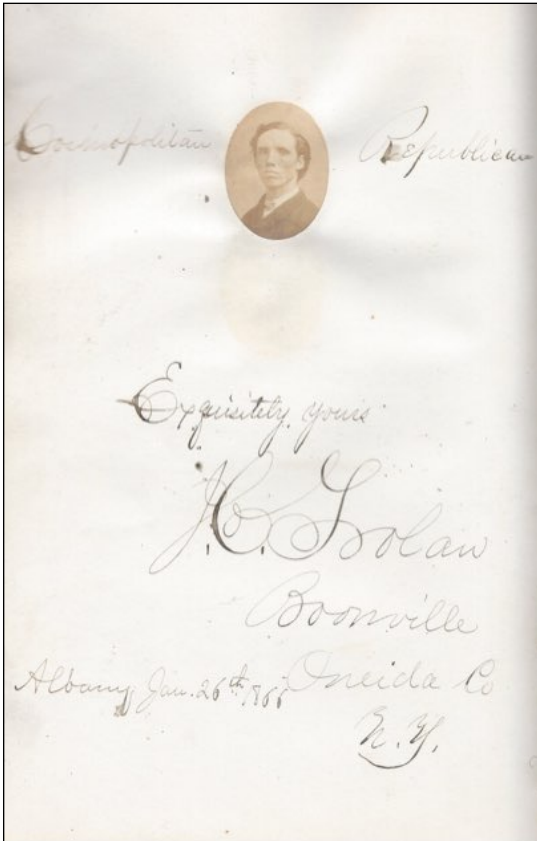 Cosmopolitan Republican
Exquisitely yours
J.C.
Boonville
Albany, Jan. 26th Oneida Co
N.Y.